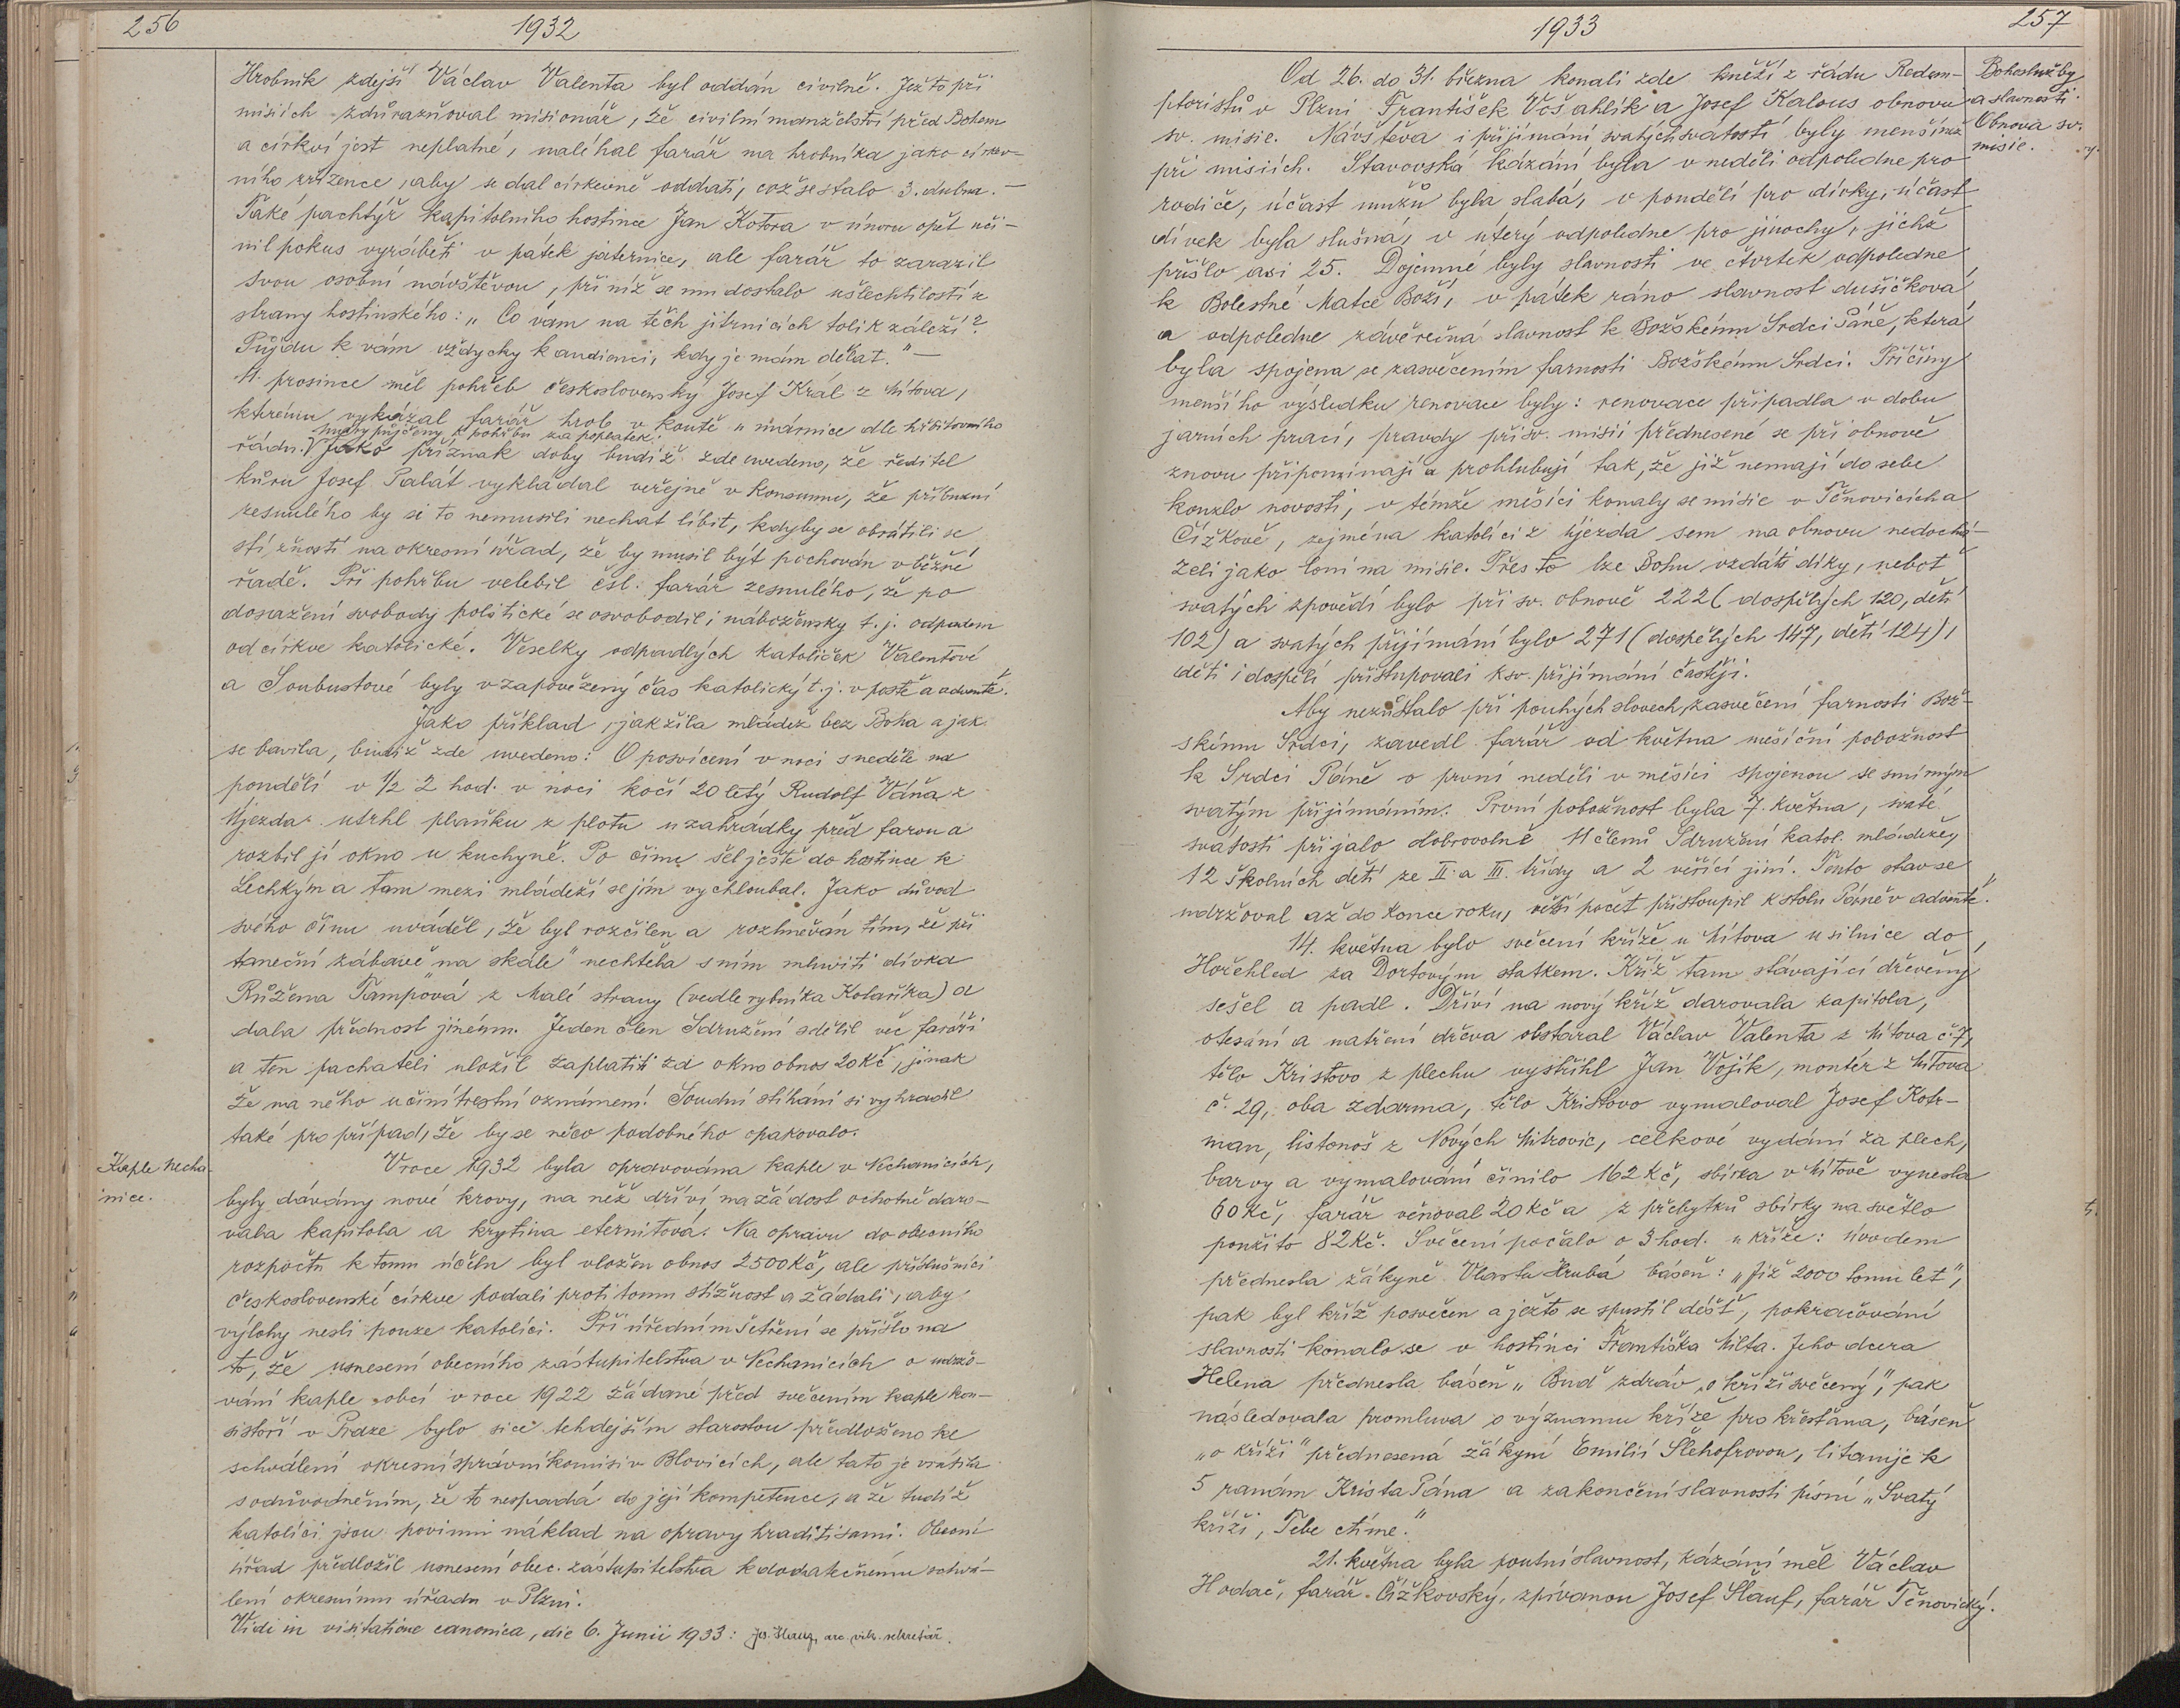 256
1932
Hrobník zdejší Václav Valenta byl oddán civilně. Ježto při
misiích zdůrazňoval misionář, že civilní manželství před Bohem
a církví jest neplatné, naléhal farář na hrobníka jako církev-
ního zřízence, aby se dal církevně oddati, což se stalo 3. dubna. —
Také pachtýř kapitolního hostince Jan Kotora v únoru opět uči-
nil pokus vyráběti v pátek jaternice, ale farář to zarazil
svou osobní návštěvou, při níž se mu dostalo ušlechtilostí ze
strany hostinského: „Co vám na těch jitrnicích tolik záleží?
Půjdu k vám vždycky k audienci, kdy je mám dělat." —
11. prosince měl pohřeb československý Josef Král z Mítova,
kterému vykázal farář hrob v koutě u márnice dle hřbitovního
máry půjčeny k pohřbu za poplatek.
řádu. V Jako příznak doby budiž zde uvedeno, že ředitel
kůru Josef Palát vykládal veřejně v konsumu, že příbuzní
zesnulého by si to nemusili nechat líbit, kdyby se obrátili se
stížností na okresní úřad, že by musil být pochován v běžné
řadě. Při pohřbu velebil čsl. farář zesnulého, že po
dosažení svobody politické se osvobodil i nábožensky t. j. odpadem
od církve katolické. Veselky odpadlých katoliček Valentové
a Soubustové byly v zapověžený čas katolický t. j. v postě a adventě.
Jako příklad, jak žila mládež bez Boha a jak
se bavila, budiž zde uvedeno: O posvícení v noci s neděle na
pondělí v 1/2 2 hod. v noci kočí 20 letý Rudolf Váňa z
Újezda utrhl plaňku z plotu u zahrádky před farou a
rozbil jí okno u kuchyně. Po činu šel ještě do hostince k
Lechkým a tam mezi mládeží se jím vychloubal. Jako důvod
svého činu uváděl, že byl rozčilen a rozhněván tím, že při
taneční zábavě „na skále" nechtěla s ním mluviti dívka
Růžena Tampová z Malé strany (vedle rybníka Kolaříka) a
dala přednost jinému. Jeden člen Sdružení sdělil věc faráři
a ten pachateli uložil zaplatiti za okno obnos 20 Kč, jinak
že na něho učiní trestní oznámení. Soudní stíhání si vyhradil
také pro případ, že by se něco podobného opakovalo.
Kaple Necha-
nice.
V roce 1932 byla opravována kaple v Nechanicích,
byly dávány nové krovy, na něž dříví na žádost ochotně daro-
vala kapitola a krytina eternitová. Na opravu do obecního
rozpočtu k tomu účelu byl vložen obnos 2500 Kč, ale příslušníci
československé církve podali proti tomu stížnost a žádali, aby
výlohy nesli pouze katolíci. Při úředním šetření se přišlo na
to, že usnesení obecního zastupitelstva v Nechanicích o udržo-
vání kaple obcí v roce 1922 žádané před svěcením kaple kon-
sistoří v Praze bylo sice tehdejším starostou předloženo ke
schválení okresní správní komisi v Blovicích, ale tato je vrátila
s odůvodněním, že to nespadá do její kompetence, a že tudíž
katolíci jsou povinni náklad na opravy hraditi sami. Obecní
úřad předložil usnesení obec. zastupitelstva k dodatečnému schvá-
lení okresnímu úřadu v Plzni.
Vidi in visitatione canonica, die 6. Junii 1933: arc. vik. sekretář.
1933
257
Bohoslužby
a slavnosti.
Obnova sv.
misie.
Od 26. do 31. března konali zde kněží z řádu Redem-
ptoristů v Plzni František Vršahlík a Josef Kalous obnovu
sv. misie. Návštěva i přijímání svatých svátostí byly menší než
při misiích. Stavovská kázání byla v neděli odpoledne pro
rodiče, účast mužů byla slabá, v pondělí pro dívky, účast
dívek byla slušná, v úterý odpoledne pro jinochy, jichž
přišlo asi 25. Dojemné byly slavnosti ve čtvrtek odpoledne
k Bolestné Matce Boží, v pátek ráno slavnost dušičková
a odpoledne závěrečná slavnost k Božskému Srdci Páně, která
byla spojena se zasvěcením farnosti Božskému Srdci. Příčiny
menšího výsledku renovace byly: renovace připadla v dobu
jarních prací, pravdy při sv. misii přednesené se při obnově
znovu připomínají a prohlubují tak, že již nemají do sebe
kouzlo novosti, v témže měsíci konaly se misie v Těnovicích a
Čížkově, zejména katolíci z Újezda sem na obnovu nedochá-
zeli jako loni na misie. Přes to lze Bohu vzdáti díky, neboť
svatých zpovědí bylo při sv. obnově 222 (dospělých 120, dětí
102) a svatých přijímání bylo 271 (dospělých 147, dětí 124),
děti i dospělí přistupovali k sv. přijímání častěji.
Aby nezůstalo při pouhých slovech zasvěcení farnosti Bož-
skému Srdci, zavedl farář od května měsíční pobožnost
k Srdci Páně o první neděli v měsíci spojenou se smírným
svatým přijímáním. První pobožnost byla 7. května, svaté
svátosti přijalo dobrovolně 11 členů Sdružení katol. mládeže,
12 školních dětí ze II. a III. třídy a 2 věřící jiní. Tento stav se
udržoval až do konce roku, větší počet přistoupil k stolu Páně v adventě.
14. května bylo svěcení kříže u Mítova u silnice do
Hořehled za Dortovým statkem. Kříž tam stávající dřevěný
sešel a padl. Dříví na nový kříž darovala kapitola,
otesání a natření dřeva obstaral Václav Valenta z Mítova č. 7,
tělo Kristovo z plechu vystřihl Jan Vojík, montér z Mítova
č. 29, oba zdarma, tělo Kristovo vymaloval Josef Kotr-
man, listonoš z Nových Mitrovic, celkové vydání za plech,
barvy a vymalování činilo 162 Kč, sbírka v Mítově vynesla
60 Kč, farář věnoval 20 Kč a z přebytků sbírky na světlo
použito 82 Kč. Svěcení počalo o 3 hod. u kříže: úvodem
přednesla žákyně Vlasta Hrubá báseň: „Již 2000 tomu let",
pak byl kříž posvěcen a ježto se spustil déšť, pokračování
slavnosti konalo se v hostinci Františka Milta. Jeho dcera
Helena přednesla báseň „Buď zdráv, o kříži svěcený", pak
následovala promluva o významu kříže pro křesťana, báseň
„o kříži" přednesená žákyní Emilií Šlehofrovou, litanije k
5 ranám Krista Pána a zakončení slavnosti písní „Svatý
kříži, Tebe ctíme."
21. května byla poutní slavnost, kázání měl Václav
Hodač, farář Čížkovský, zpívanou Josef Šlauf, farář Těnovický.